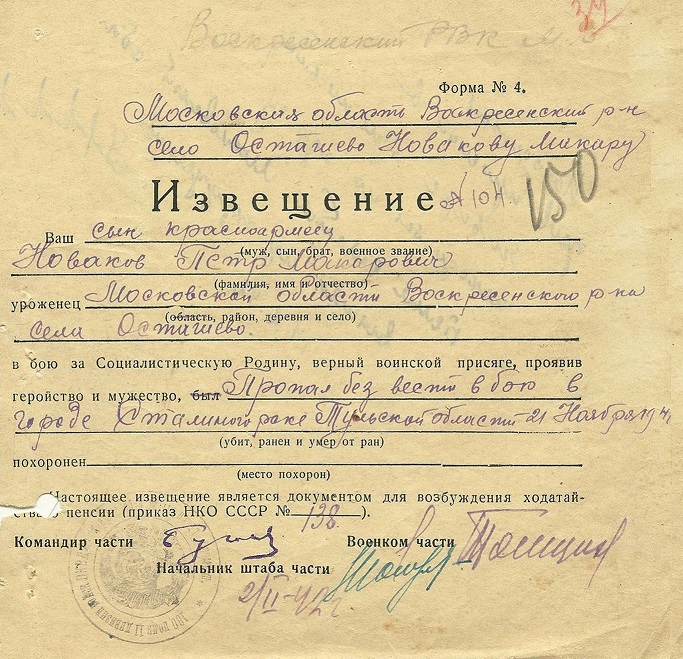 34
Воскресенский РВК М.О
Форма № 4.
Московская область Воскресенский р-н
село Осташево Новакову Макару
Извещение № 104 150
Ваш сын красноармеец
(муж, сын, брат, военное звание)
Новаков Пётр Макарович
(фамилия, имя и отчество)
уроженец Московской области Воскресенского р-на
(область, район, деревня и село)
села Осташево.
в бою за Социалистическую Родину, верный воинской присяге, проявив
геройство и мужество, был Пропал без вести в бою в
городе Сталиногорске Тульской области 21 Ноября
(убит, ранен и умер от ран)
похоронен
(место похорон)
Настоящее извещение является документом для возбуждения ходатай-
ства о пенсии (приказ НКО СССР № 138.).
Командир части Военком части
Начальник штаба части
2/II-42г.